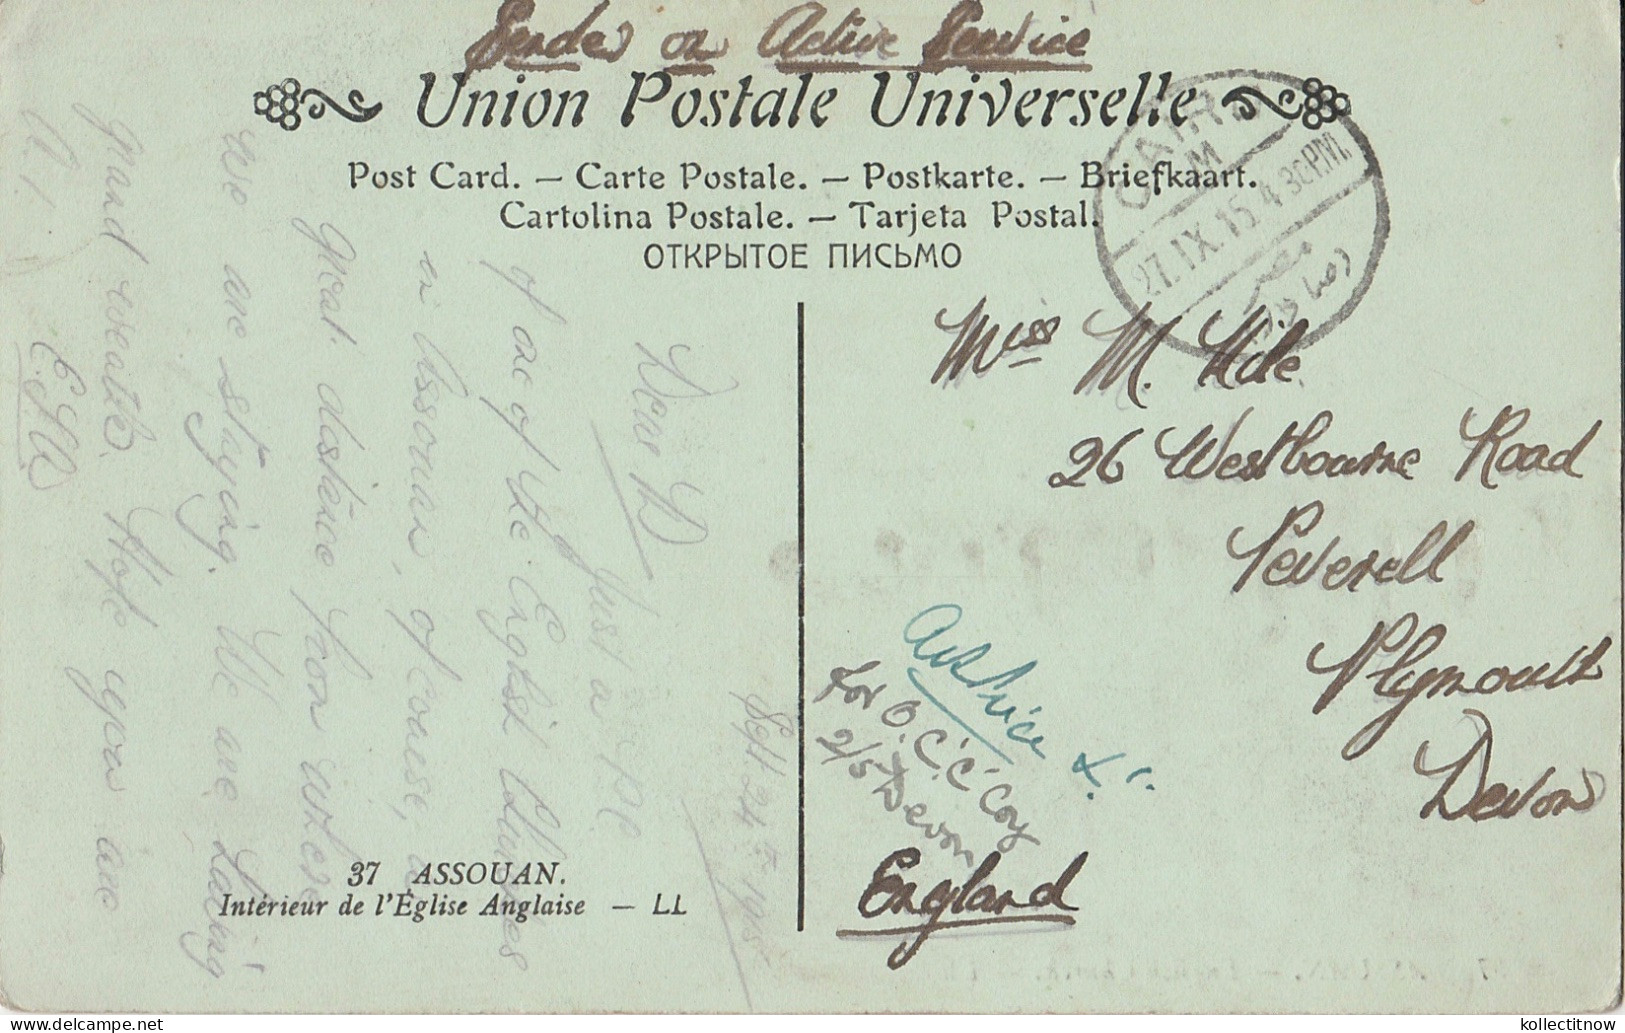 Sender on Active Service
Union Postale Universelle
Post Card. — Carte Postale. — Postkarte. — Briefkaart.
Cartolina Postale. — Tarjeta Postal.
ОТКРЫТОЕ ПИСЬМО
CAIRO
27.IX.15.4.30P.M.
Sept 24th 1915
Dear D
Just a PC
of one of the English Churches
in Assouan, of course, a
great distance from where
we are staying. We are having
grand weather. Hope you are
A.1.
Miss M.
26 Westbourne Road
Peverell
Plymouth
Devon
England
For O.C. 'C' Coy
2/5 Devon
37 ASSOUAN.
Intérieur de l'Église Anglaise — LL
kollectitnow